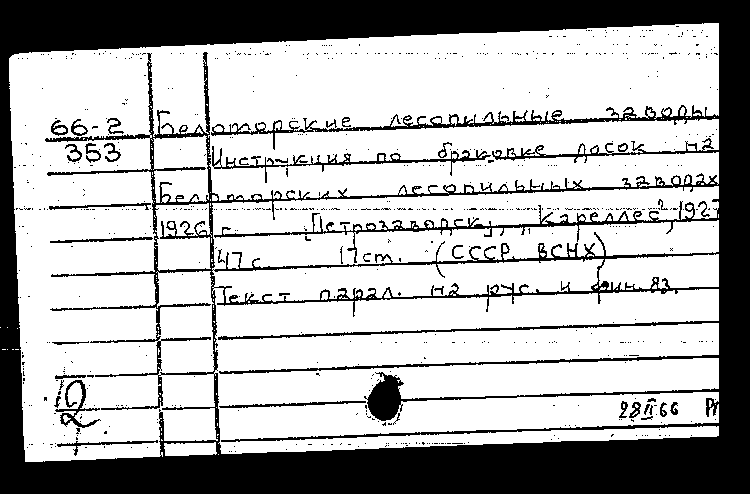 66-2 Беломорские лесопильные заводы.
353 Инструкция по браковке досок на
Беломорских лесопильных заводах
1926 г. [Петрозаводск], „Кареллес", 1927
47 с. 17 см. (СССР. ВСНХ)
Текст парал. на рус. и фин. яз.
28 II 66